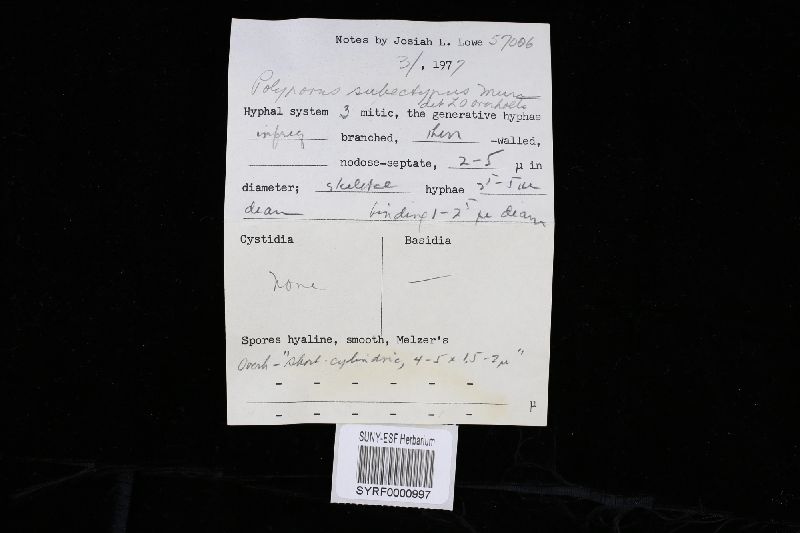 Notes by Josiah L. Lowe 57006
3/, 1977
Polyporus subectypus Murr
det L O Overholts
Hyphal system 3 mitic, the generative hyphae
infreq branched, thin -walled,
nodose-septate, 2-5 μ in
diameter; skeletal hyphae 2⁵-5 μ
diam binding 1-2⁵ μ diam
Cystidia Basidia
none —
Spores hyaline, smooth, Melzer's
Overh - "short-cylindric, 4-5 x 1.5-2μ"
- - - - - -
μ
- - - - - -
SUNY-ESF Herbarium
SYRF0000997